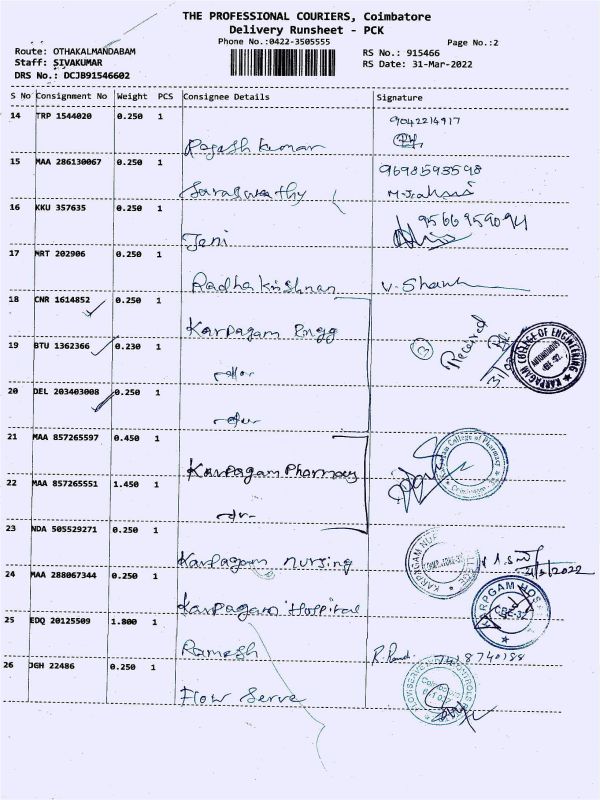 THE PROFESSIONAL COURIERS, Coimbatore
Delivery Runsheet - PCK
Phone No.:0422-3505555
Page No.:2
Route: OTHAKALMANDABAM
RS No.: 915466
Staff: SIVAKUMAR
RS Date: 31-Mar-2022
DRS No.: DCJB91546602
S No Consignment No Weight PCS Consignee Details Signature
14 TRP 1544020 0.250 1
9042214917
Rajesh kumar
15 MAA 286130067 0.250 1
9698593598
Saraswathy
16 KKU 357635 0.250 1
9566959094
Jeni
17 MRT 202906 0.250 1
Radha krishnan
18 CNR 1614852 0.250 1
Karpagam Engg
19 BTU 1362366 0.230 1
3 Received
KARPAGAM COLLEGE OF ENGINEERING
AUTONOMOUS
20 DEL 203403008 0.250 1
21 MAA 857265597 0.450 1
Karpagam Pharmacy
College of Pharmacy
22 MAA 857265551 1.450 1
23 NDA 505529271 0.250 1
Karpagam nursing
24 MAA 288067344 0.250 1
Karpagam Hospital
CBE-32
25 EDQ 20125509 1.800 1
Ramesh
26 JGH 22486 0.250 1
Flow Serve